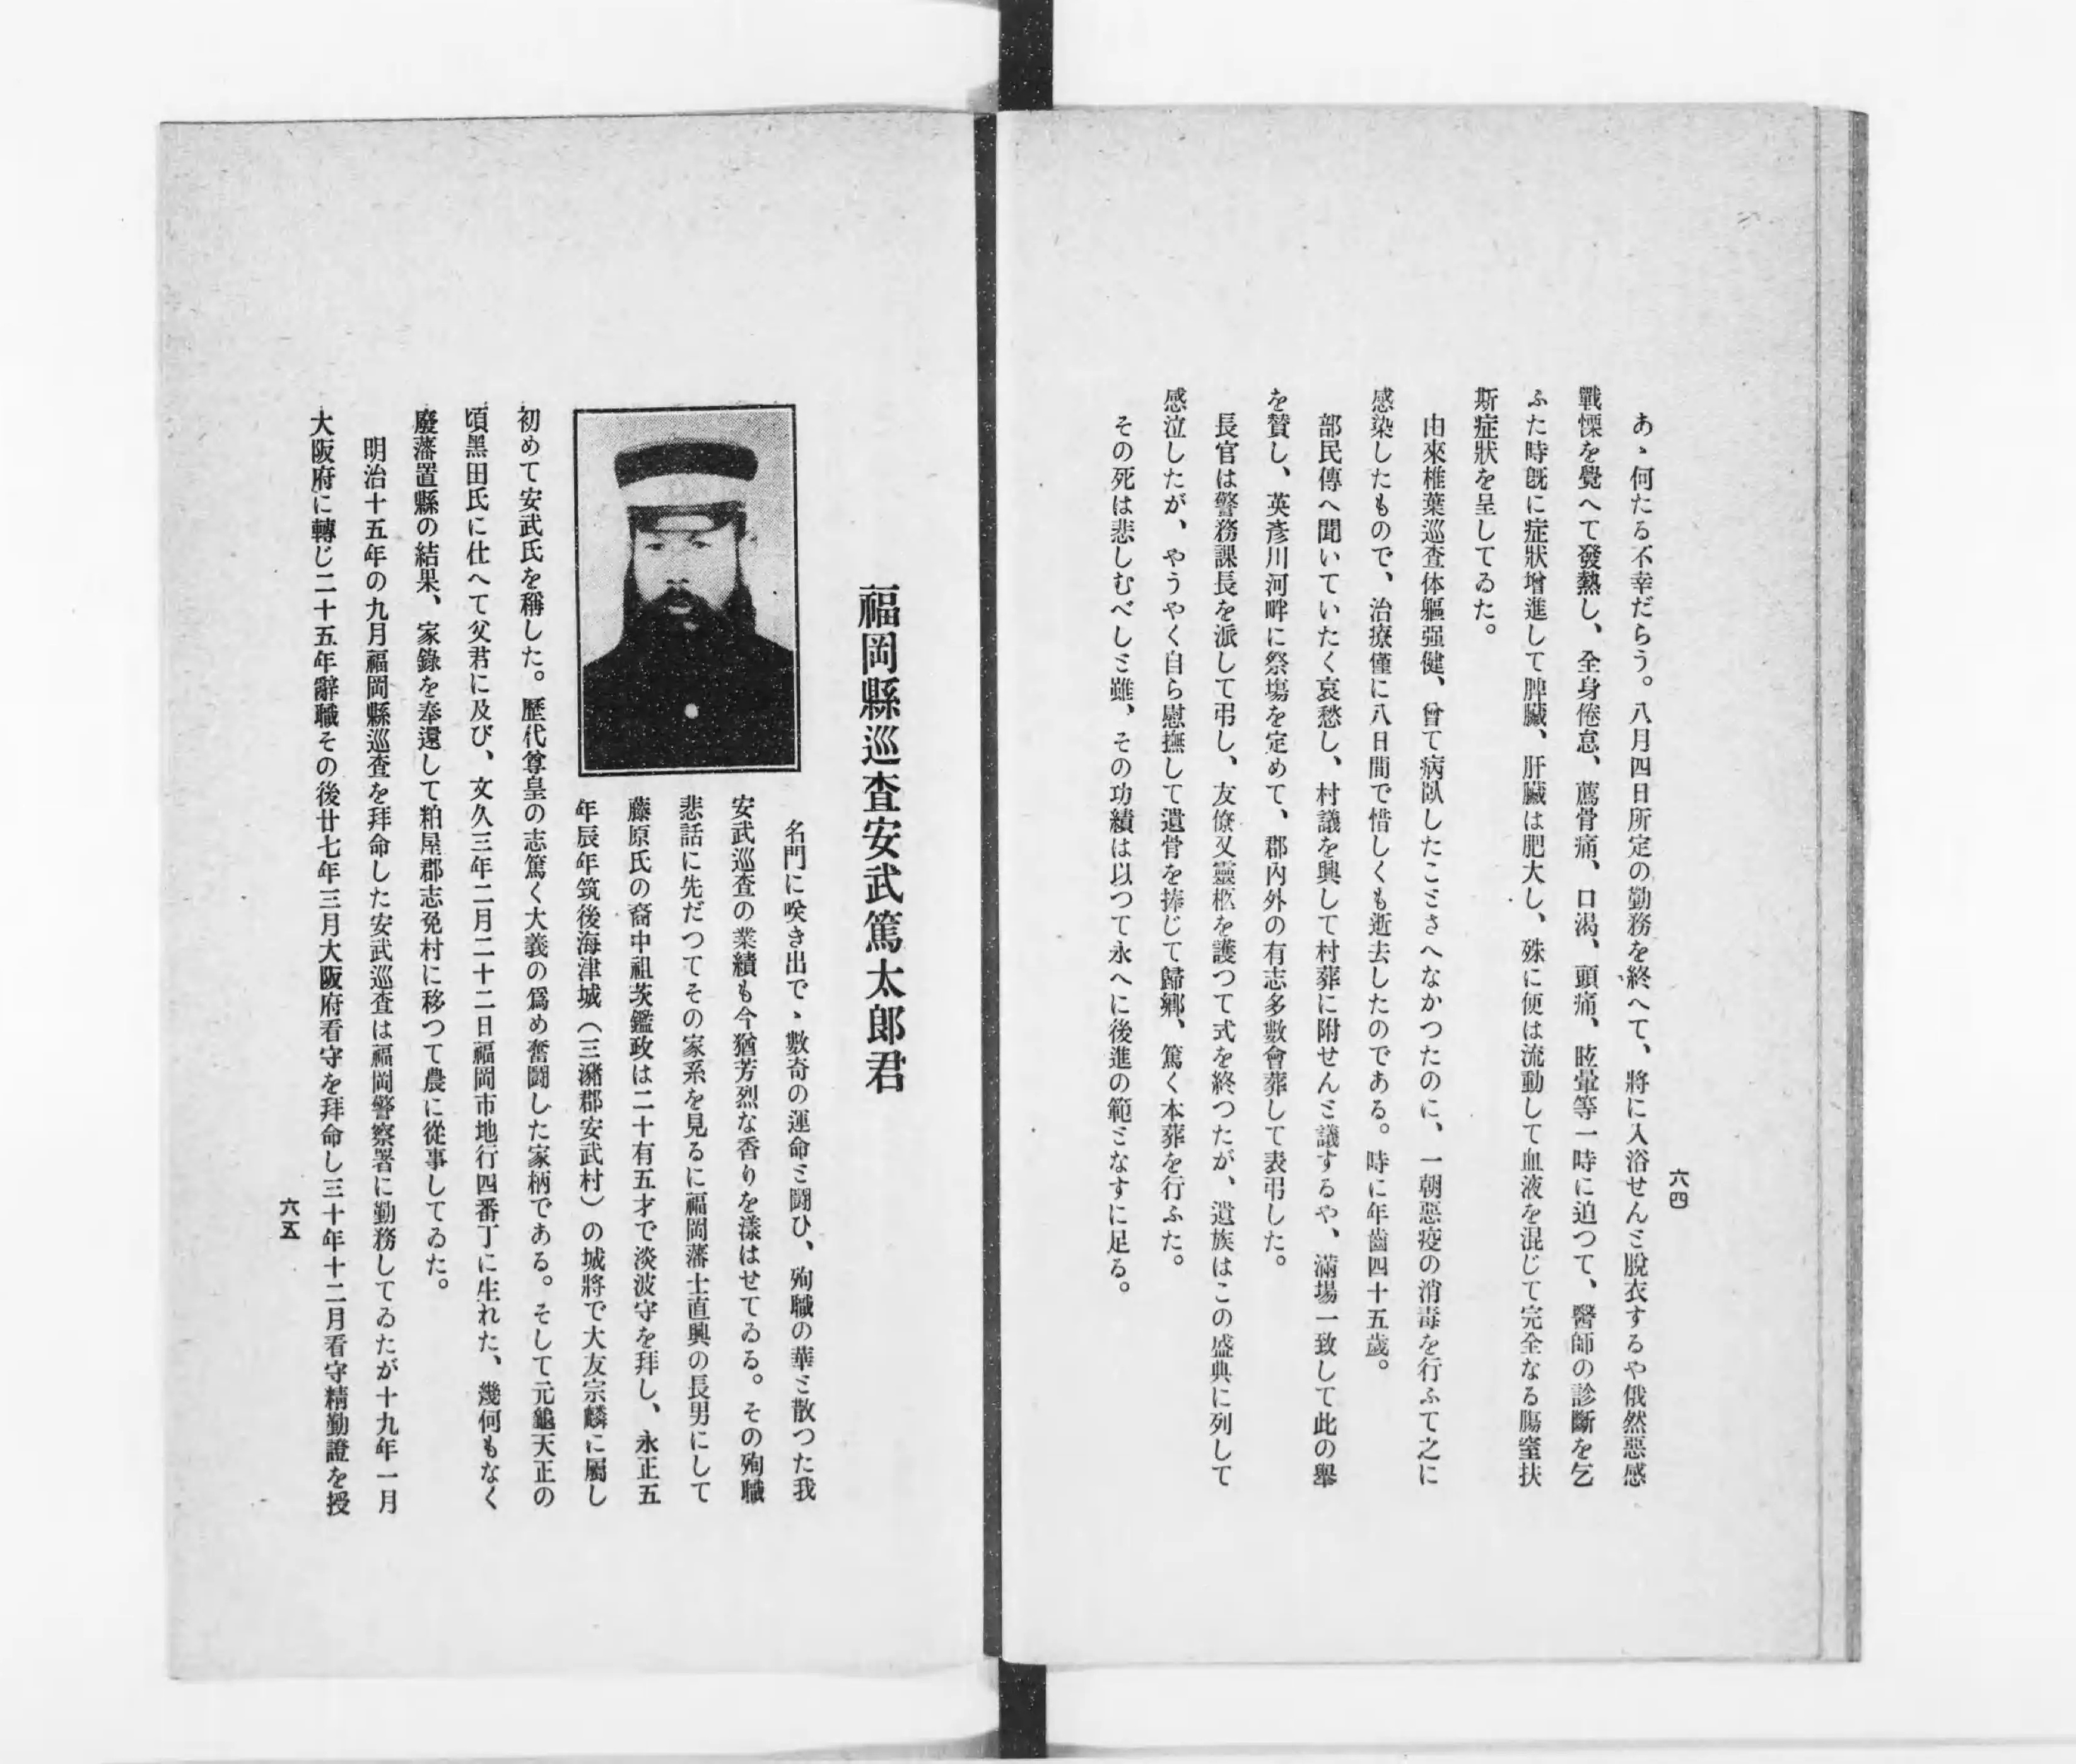 六四
あゝ何たる不幸だらう。八月四日所定の勤務を終へて、將に入浴せんと脫衣するや俄然惡感
戰慄を覺へて發熱し、全身倦怠、薦骨痛、口渴、頭痛、眩暈等一時に迫つて、醫師の診斷を乞
ふた時既に症狀增進して脾臟、肝臟は肥大し、殊に便は流動して血液を混じて完全なる膓窒扶
斯症狀を呈してゐた。
由來椎葉巡査体軀强健、曾て病臥したことさへなかつたのに、一朝惡疫の消毒を行ふて之に
感染したもので、治療僅に八日間で惜しくも逝去したのである。時に年齒四十五歲。
部民傳へ聞いていたく哀愁し、村議を興して村葬に附せんと議するや、滿場一致して此の擧
を贊し、英彥川河畔に祭塲を定めて、郡內外の有志多數會葬して表弔した。
長官は警務課長を派して弔し、友僚又靈柩を護つて式を終つたが、遺族はこの盛典に列して
感泣したが、やうやく自ら慰撫して遺骨を捧じて歸鄕、篤く本葬を行ふた。
その死は悲しむべしと雖、その功績は以つて永へに後進の範となすに足る。
福岡縣巡査安武篤太郎君
名門に咲き出で、數奇の運命と鬪ひ、殉職の華と散つた我
安武巡査の業績も今猶芳烈な香りを漾はせてゐる。その殉職
悲話に先だつてその家系を見るに福岡藩士直興の長男にして
藤原氏の裔中祖茨鑑政は二十有五才で淡波守を拜し、永正五
年辰年筑後海津城（三瀦郡安武村）の城將で大友宗麟に屬し
初めて安武氏を稱した。歷代尊皇の志篤く大義の爲め奮鬪した家柄である。そして元龜天正の
頃黑田氏に仕へて父君に及び、文久三年二月二十二日福岡市地行四番丁に生れた、幾何もなく
廢藩置縣の結果、家錄を奉還して粕屋郡志免村に移つて農に從事してゐた。
明治十五年の九月福岡縣巡査を拜命した安武巡査は福岡警察署に勤務してゐたが十九年一月
大阪府に轉じ二十五年辭職その後廿七年三月大阪府看守を拜命し三十年十二月看守精勤證を授
六五